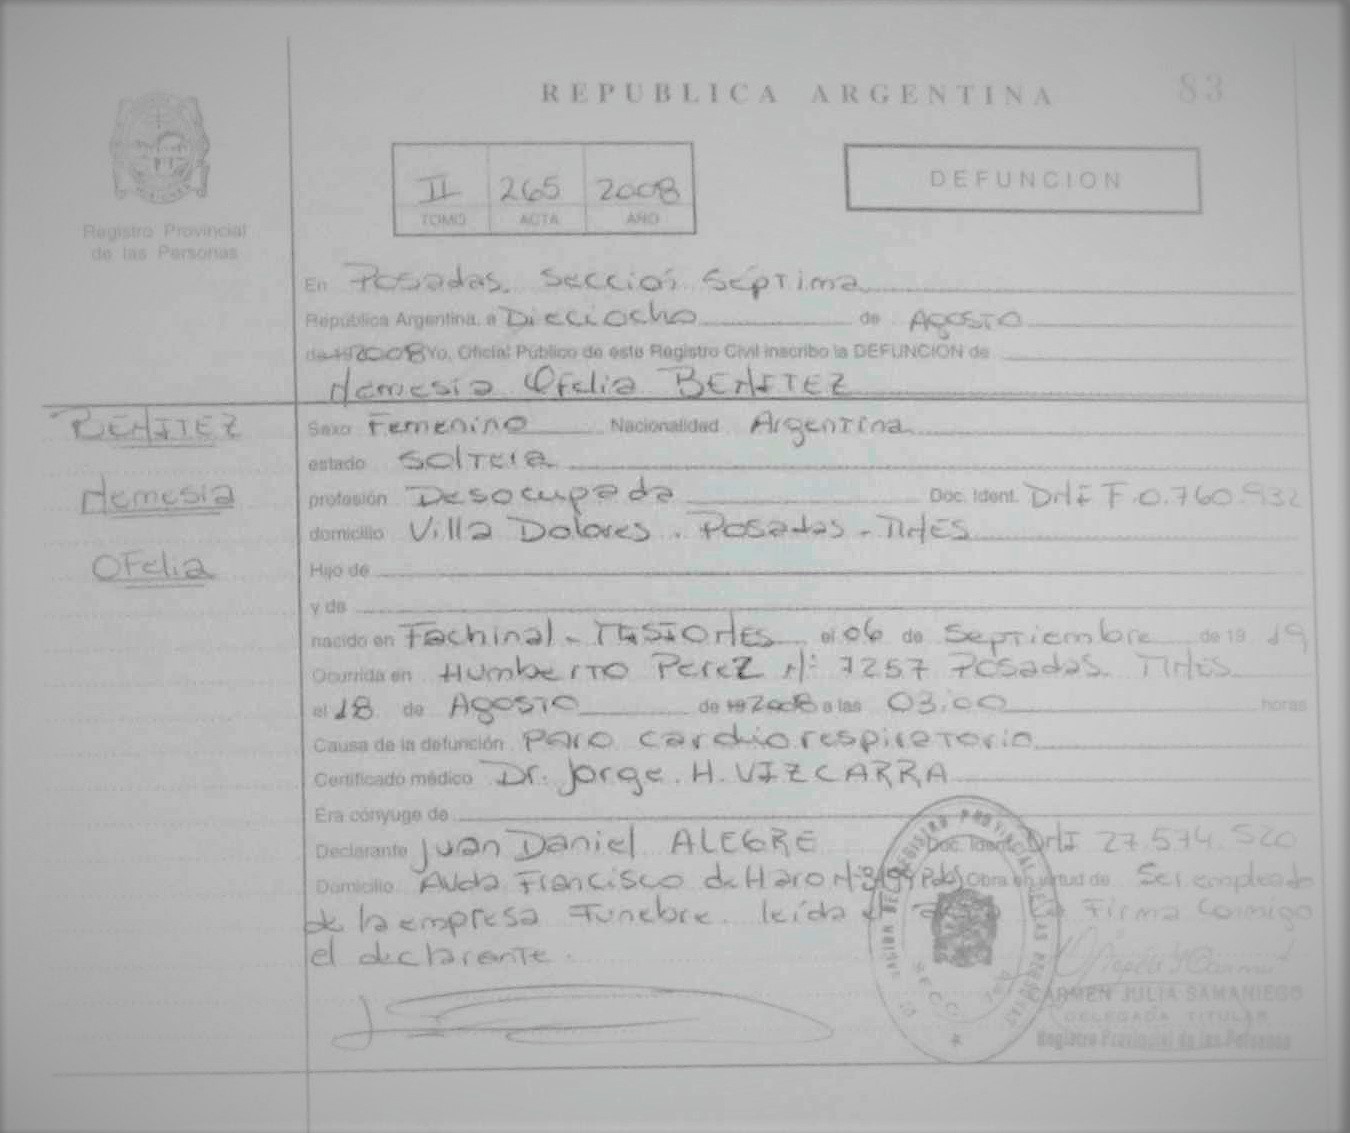 REPUBLICA ARGENTINA 83
II 265 2008
TOMO ACTA AÑO
DEFUNCION
Registro Provincial
de las Personas
En Posadas. Sección Séptima
República Argentina, a Dieciocho de Agosto
de 19 2008 Yo, Oficial Público de este Registro Civil inscribo la DEFUNCION de
Nemesia Ofelia BENITEZ
BENITEZ
Nemesia
Ofelia
Sexo Femenino Nacionalidad Argentina
estado Soltera
profesión Desocupada Doc. Ident. DNI F.0.760.932
domicilio Villa Dolores. Posadas - Mnes
Hijo de
y de
nacido en Fachinal - Misiones el 06 de Septiembre de 19 19
Ocurrida en Humberto Perez Nº 7257 Posadas. Mnes
el 18 de Agosto de 19 2008 a las 03:00 horas
Causa de la defunción Paro cardiorespiratorio
Certificado médico Dr. Jorge H. VIZCARRA
Era cónyuge de
Declarante Juan Daniel ALEGRE Doc. Ident. DNI 27.574.520
Domicilio Avda Francisco de Haro Pdas Obra en virtud de Ser empleado
de la empresa Funebre. leída el Firma conmigo
el declarante.
CARMEN JULIA SAMANIEGO
DELEGADA TITULAR
Registro Provincial de las Personas